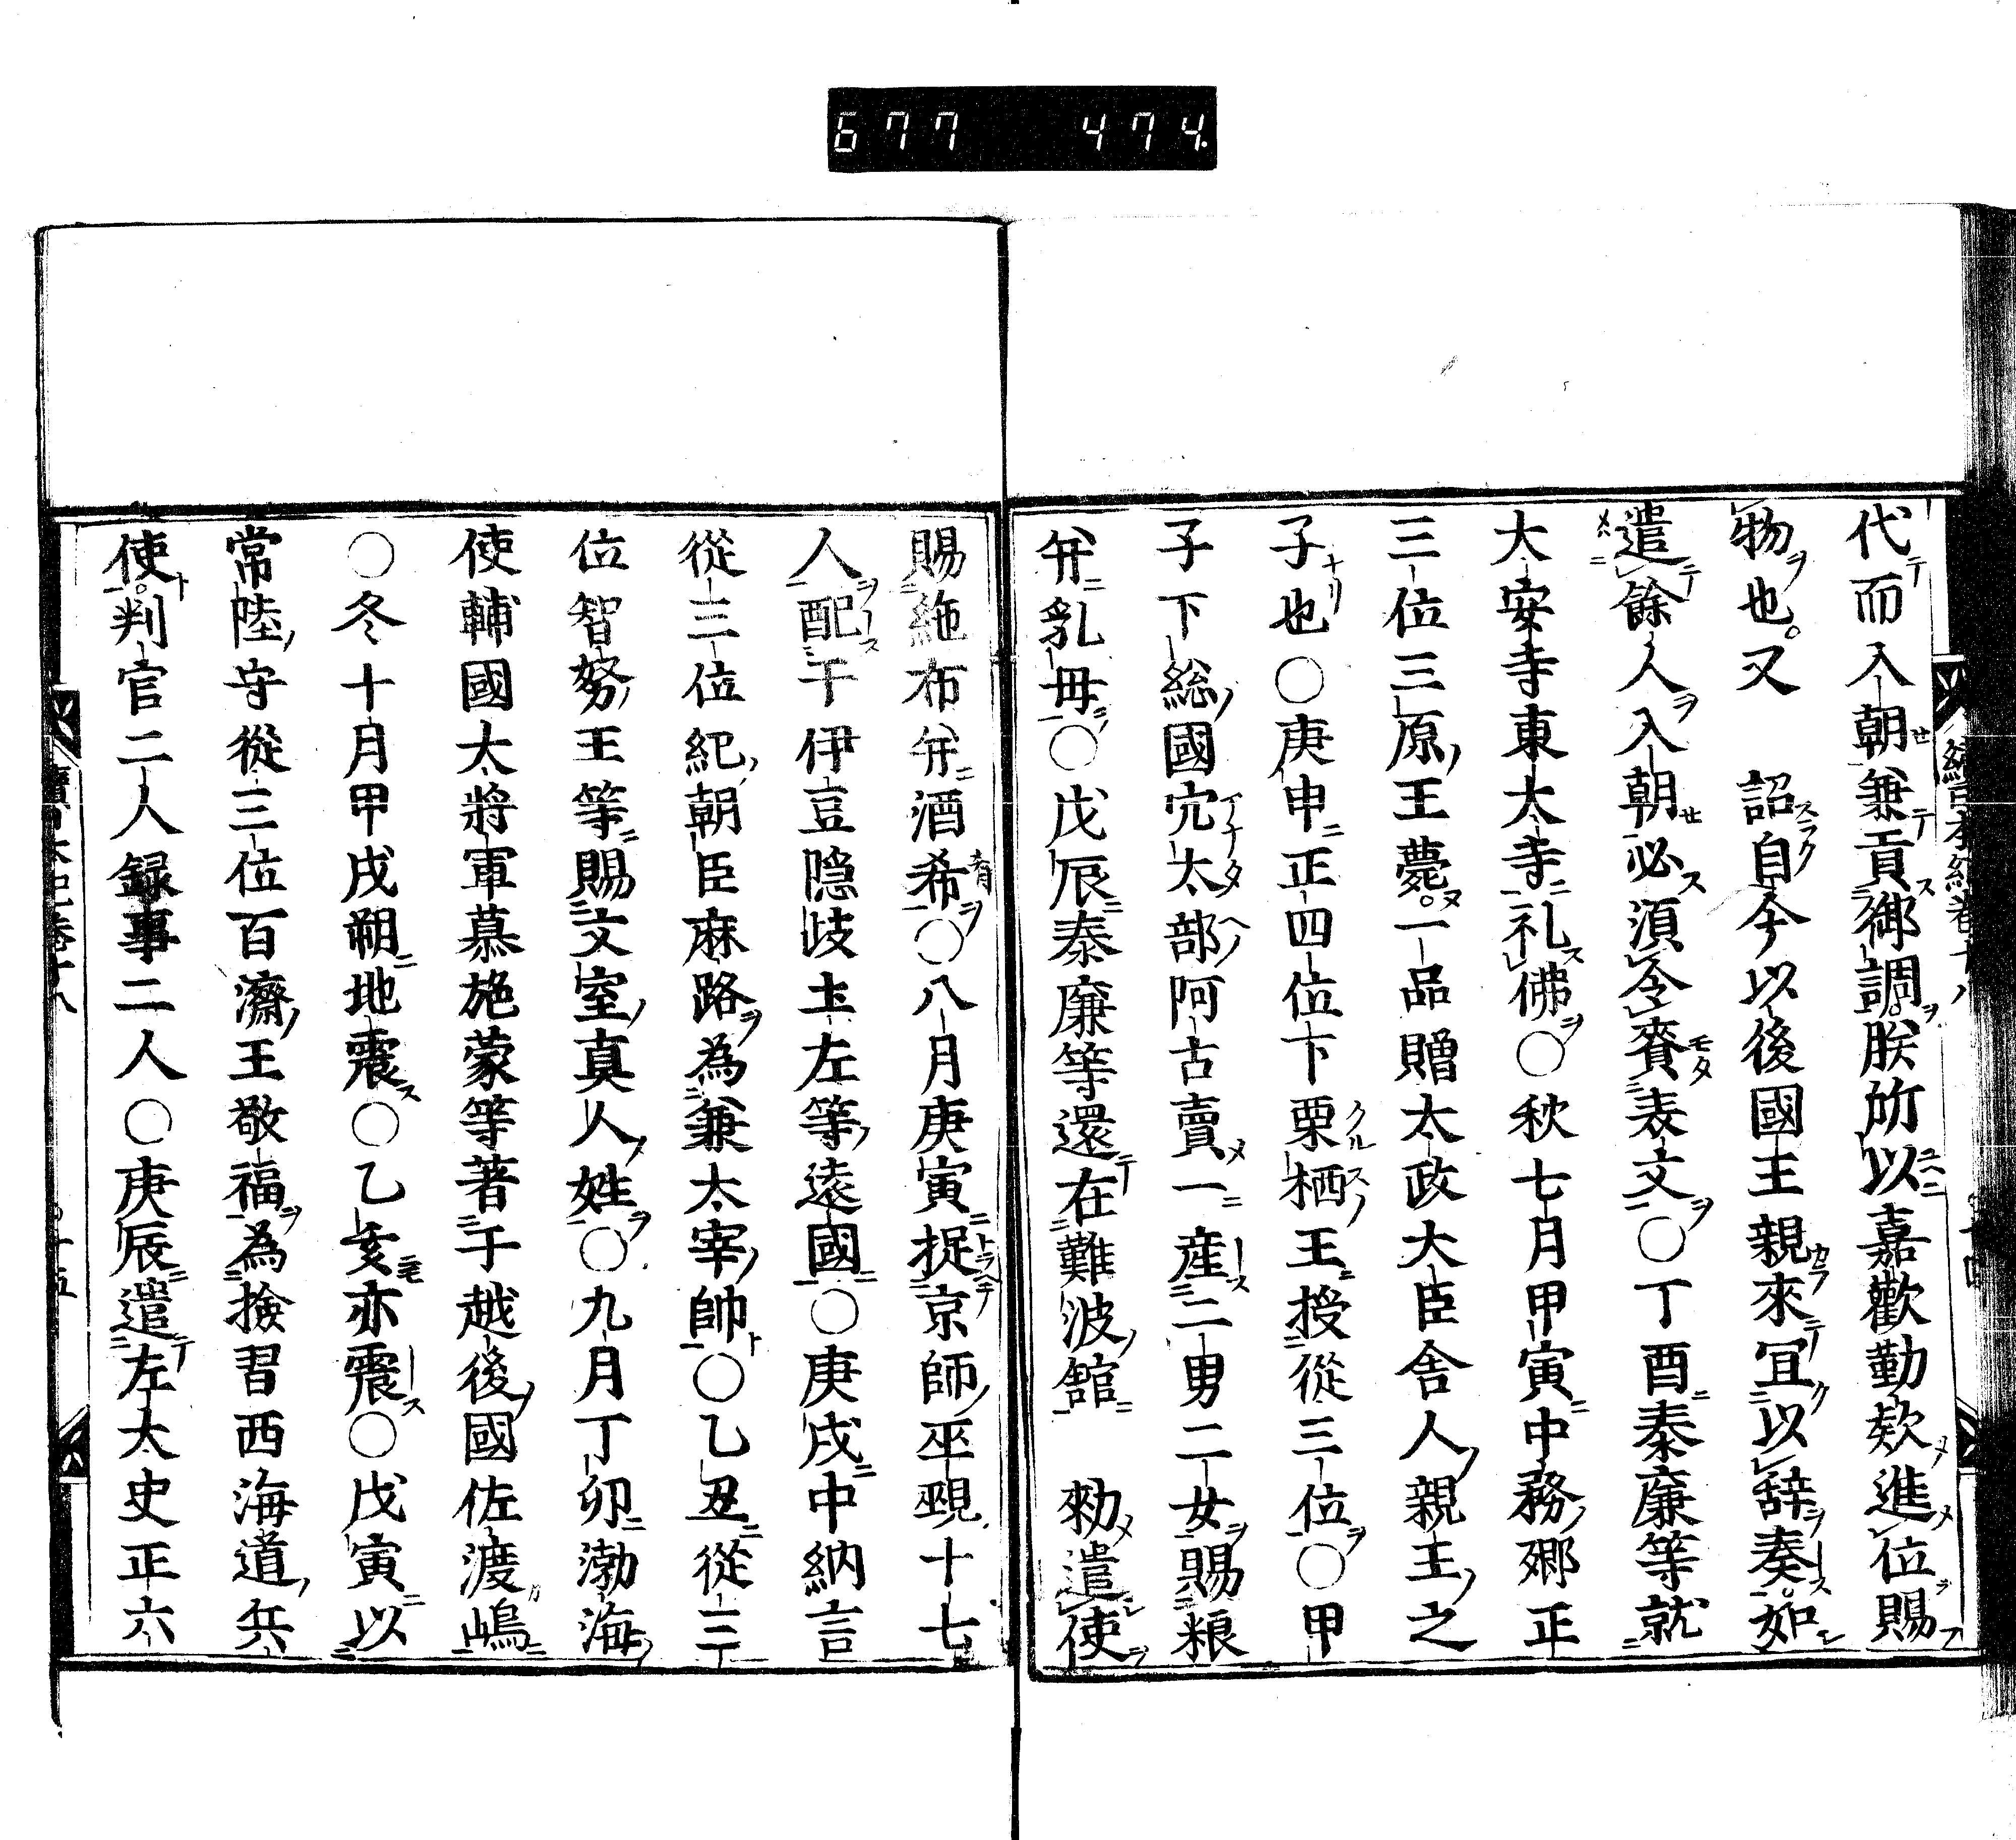 677 474.
代而入朝兼貢御調。朕所以嘉歡勤欵進位賜
物也。又　詔自今以後國王親來冝以辞奏。如
遣餘人入朝必湏令賷表文○丁酉泰廉等就
大安寺東大寺礼佛○秋七月甲寅中務卿正
三位三原王薨。一品贈太政大臣舎人親王之
子也○庚申正四位下栗栖王授從三位○甲
子下総國穴太部阿古賣一産二男二女賜粮
并乳母○戊辰泰廉等還在難波舘　勑遣使
賜絁布并酒希○八月庚寅捉京師巫覡十七
人配于伊豆隠岐土左等遠國○庚戌中納言
從三位紀朝臣麻路為兼太宰帥○乙丑從三
位智努王等賜文室真人姓○九月丁卯渤海
使輔國大將軍慕施蒙等著于越後國佐渡嶋
○冬十月甲戌朔地震○乙亥亦震○戊寅以
常陸守從三位百濟王敬福為撿習西海道兵
使。判官二人録事二人○庚辰遣左大史正六